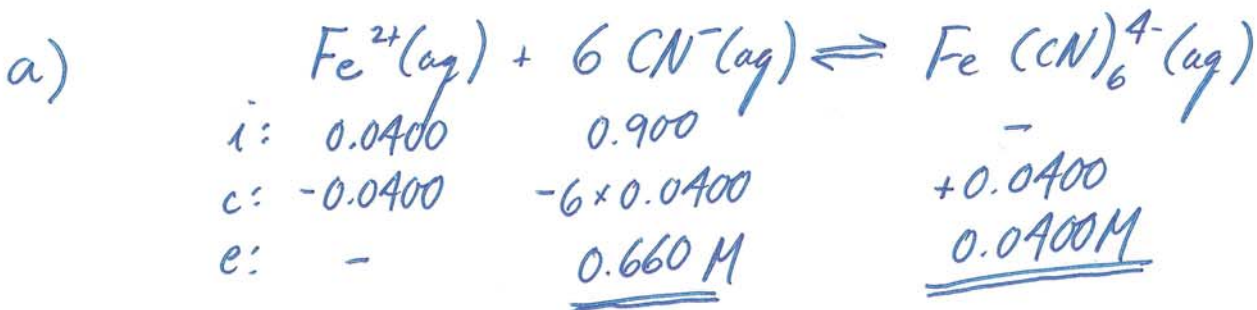 a) Fe²⁺(aq) + 6 CN⁻(aq) ⇌ Fe(CN)₆⁴⁻(aq)
i: 0.0400 0.900 -
c: -0.0400 -6×0.0400 +0.0400
e: - 0.660 M 0.0400M